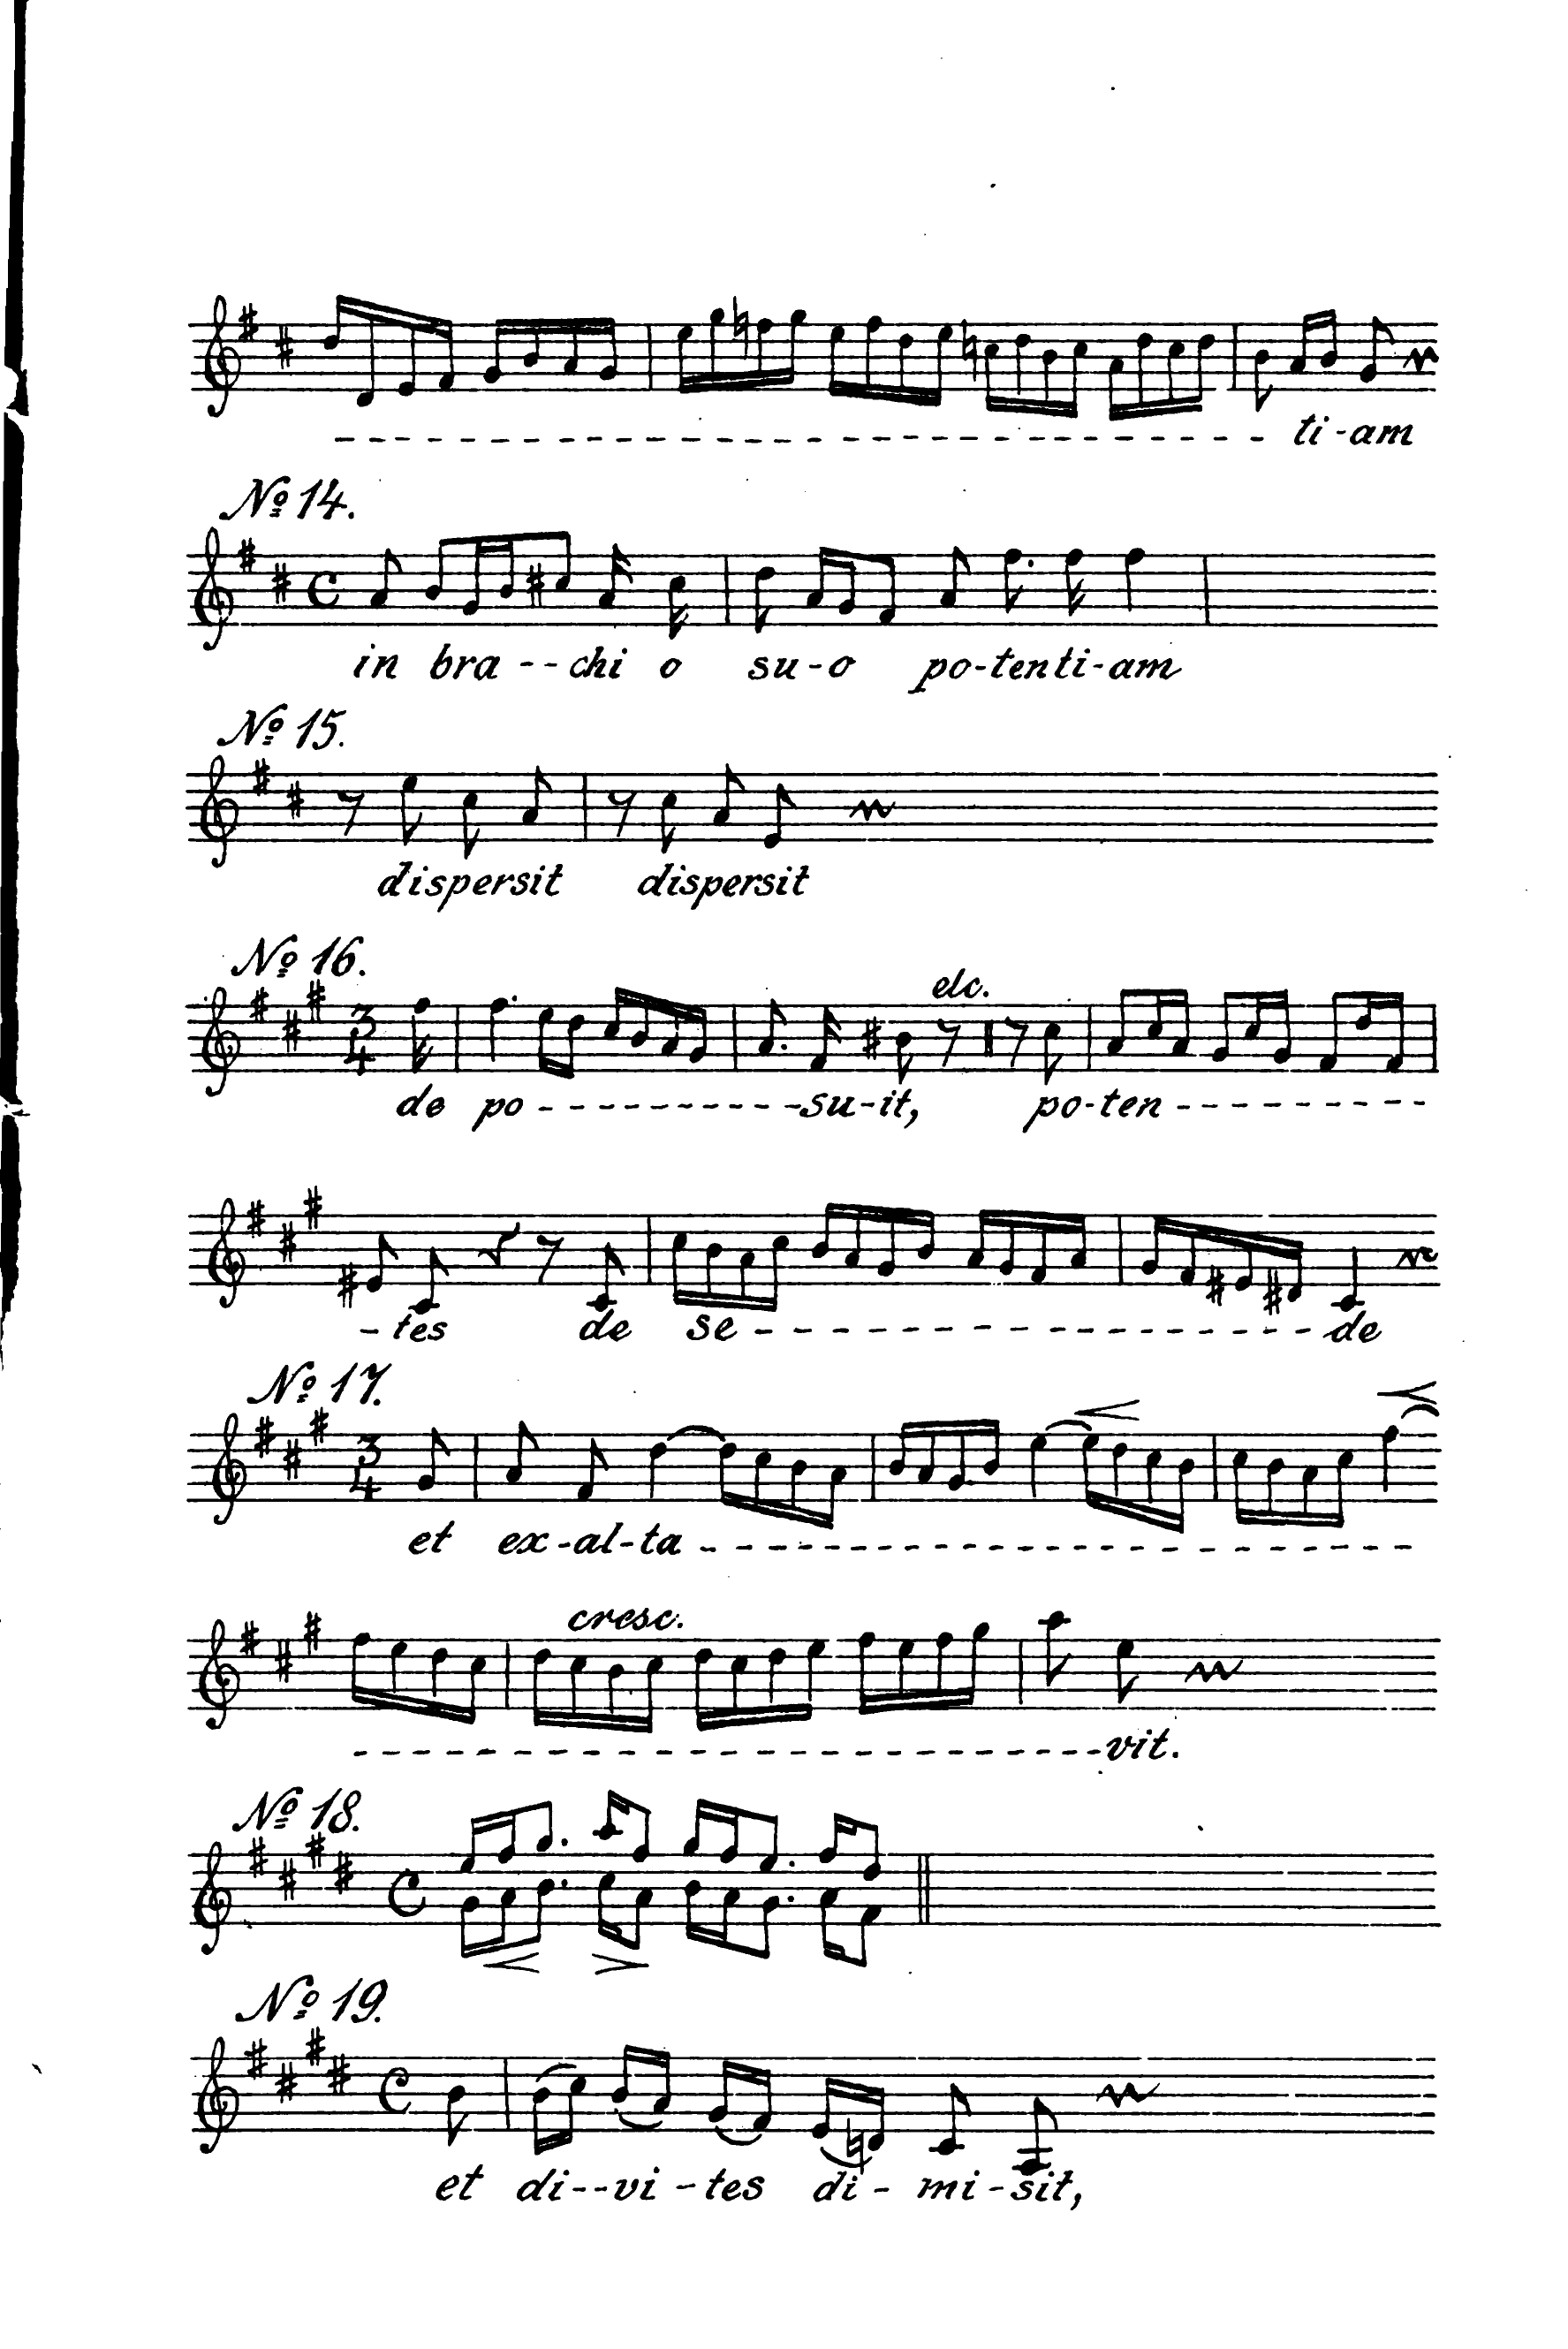 - - - - - - - - - - - - - - - - - - - - - - - - - - - - - - ti-am
Nº 14.
in bra--chi o su-o po-tenti-am
Nº 15.
dispersit dispersit
Nº 16.
etc.
3/4
de po - - - - - - - - - -su-it, po-ten - - - - - - - - -
-tes de se - - - - - - - - - - - - - - - - -de
Nº 17.
3/4
et ex-al-ta - - - - - - - - - - - - - - - - - - - - - -
cresc.
- - - - - - - - - - - - - - - - - - - - - - -vit.
Nº 18.
Nº 19.
et di--vi-tes di-mi-sit,